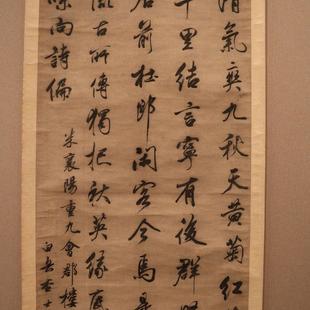 清氣爽九秋天黃菊紅
千里結言寧有後群
居前杜郎閑客今焉是
流古所傳獨把秋英緣底
味向詩偏
米襄陽重九會郡樓
白岳查士